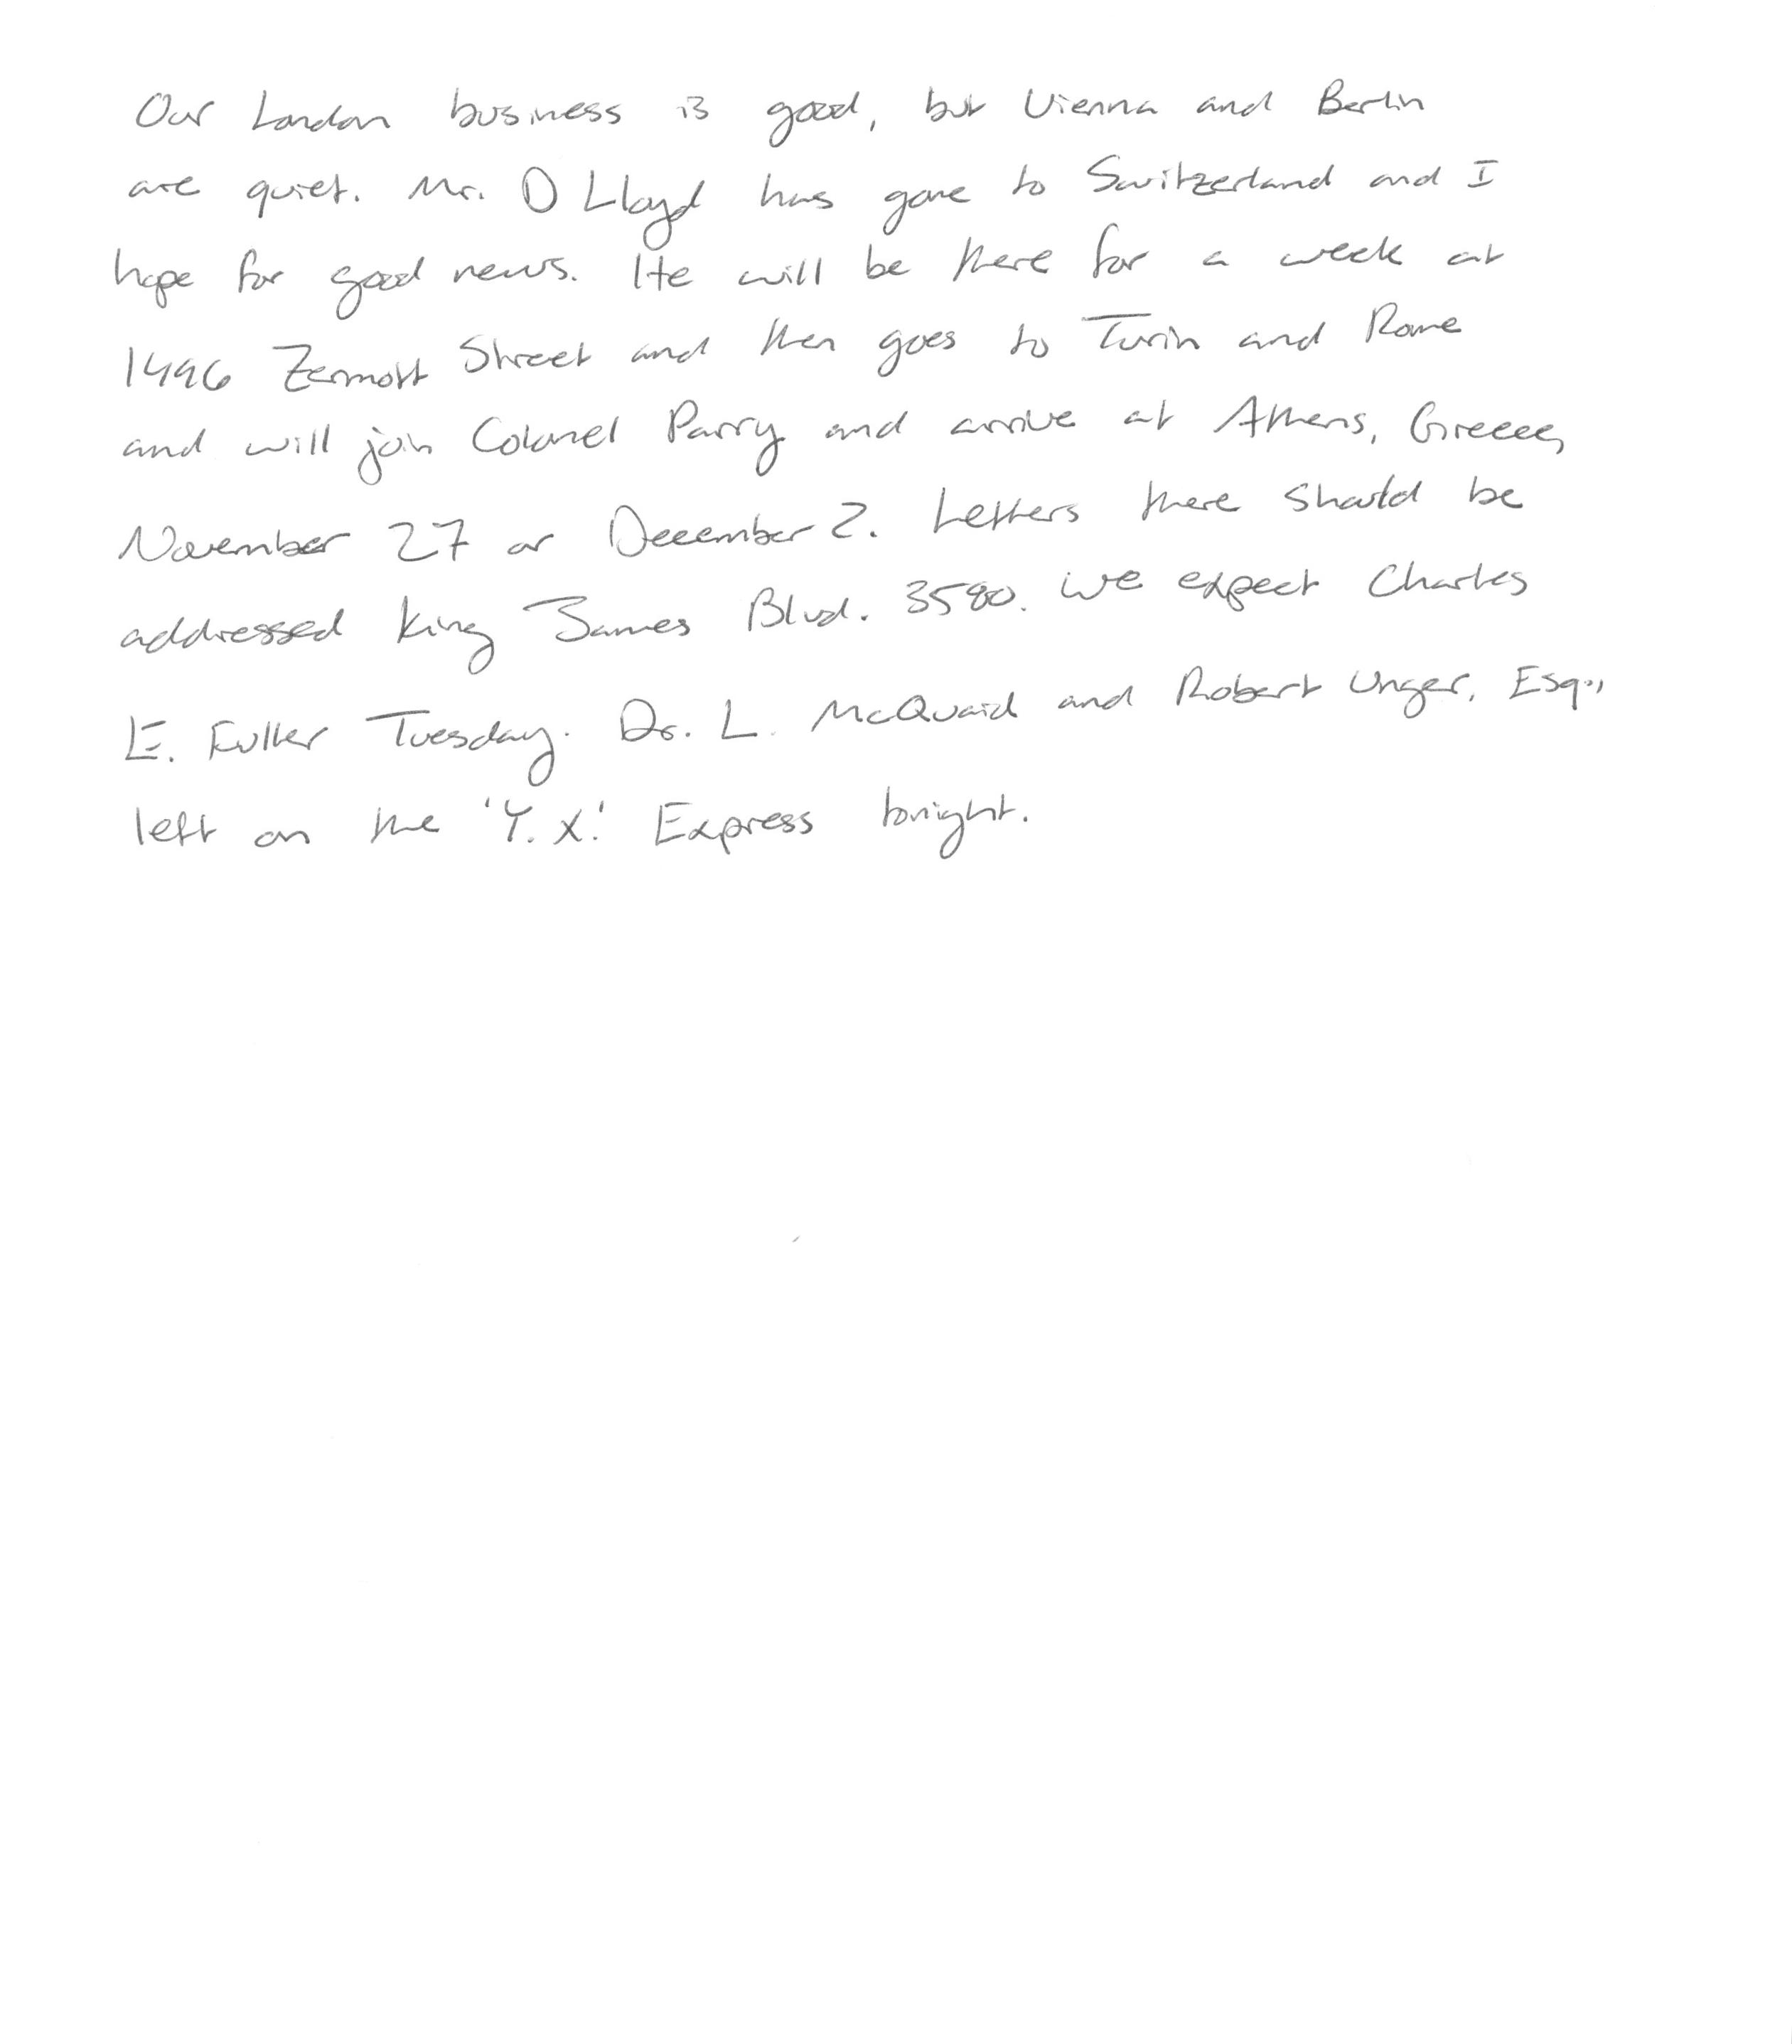 Our London business is good, but Vienna and Berlin
are quiet. Mr. D Lloyd has gone to Switzerland and I
hope for good news. He will be there for a week at
1496 Zermott Street and then goes to Turin and Rome
and will join Colonel Parry and arrive at Athens, Greece,
November 27 or December 2. Letters there should be
addressed King James Blvd. 3580. We expect Charles
E. Fuller Tuesday. Dr. L. McQuaid and Robert Unger, Esq.,
left on the 'Y.X.' Express tonight.